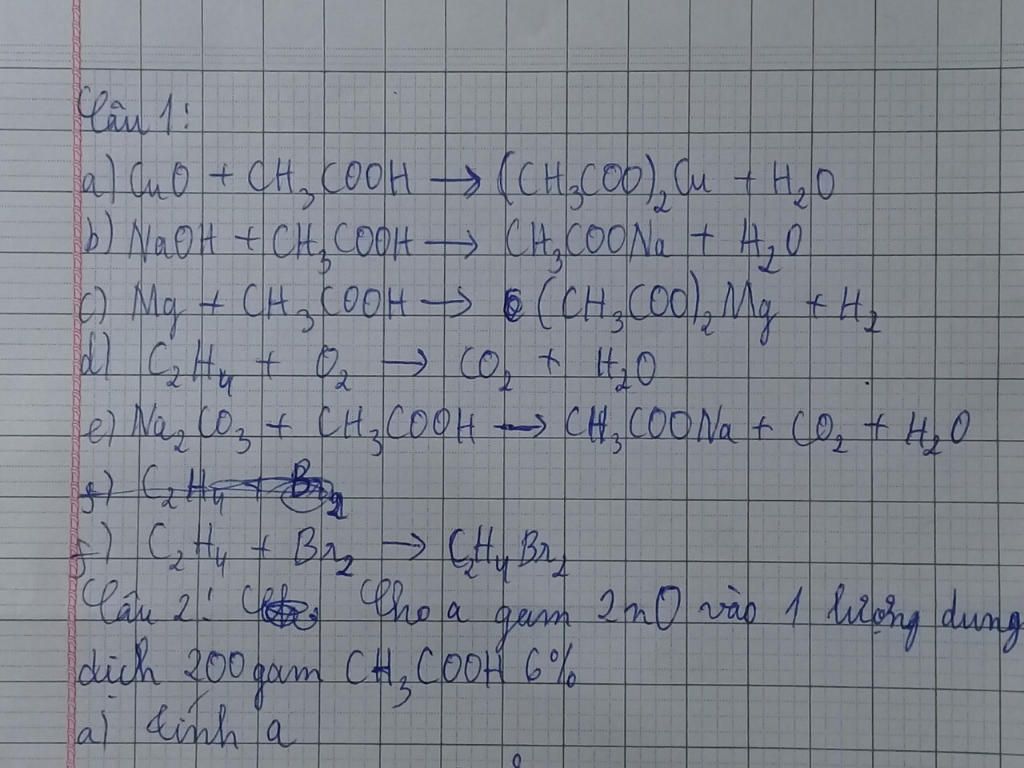 Câu 1:
a) CuO + CH₃COOH → (CH₃COO)₂Cu + H₂O
b) NaOH + CH₃COOH → CH₃COONa + H₂O
c) Mg + CH₃COOH → (CH₃COO)₂Mg + H₂
d) C₂H₄ + O₂ → CO₂ + H₂O
e) Na₂CO₃ + CH₃COOH → CH₃COONa + CO₂ + H₂O
f) C₂H₄ + Br₂
f) C₂H₄ + Br₂ → C₂H₄Br₂
Câu 2: Cho a gam ZnO vào 1 lượng dung
dịch 200gam CH₃COOH 6%
a) tính a